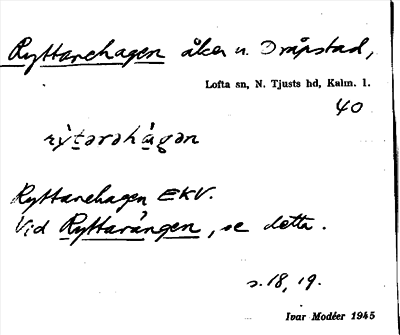 Ryttarehagen åker u. Dråpstad,
Lofta sn, N. Tjusts hd, Kalm. l.
40
rỳtərəhàgən
Ryttarehagen EKV.
Vid Ryttarängen, se detta.
s. 18, 19.
Ivar Modéer 1945